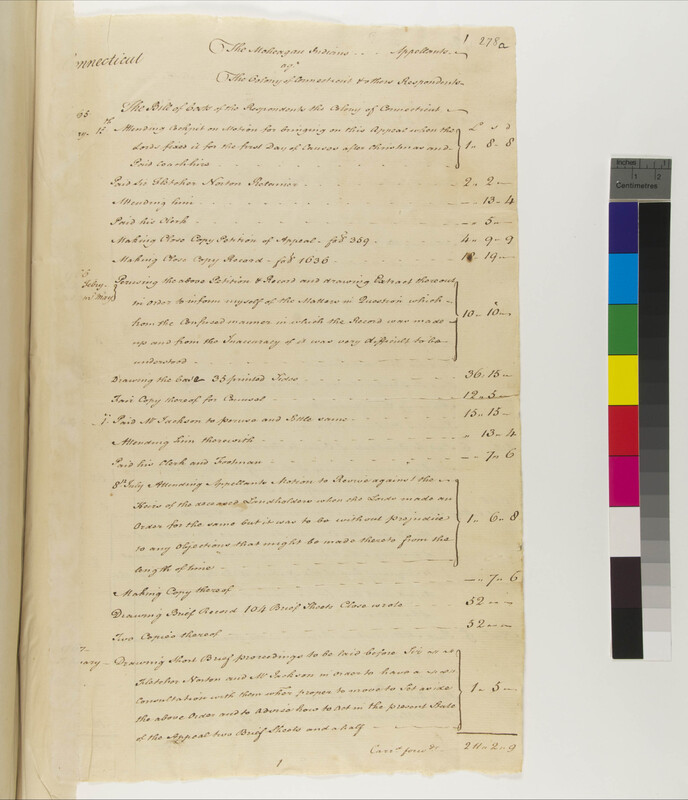 1 278a
onnecticut
The Moheagan Indians . . . Appellants
agt
The Colony of Connecticut & others Respondents
The Bill of Costs of the Respondents the Colony of Connecticut
£ s d
15th Attending Cockpit on Motion for bringing on this Appeal when the
Lords fixed it for the first Day of Causes after Christmas and 1 - 8 - 8
Paid Coach hire
Paid Sir Fletcher Norton Retainer 2 - 2 -
Attending him - 13 - 4
Paid his Clerk - 5 -
Making Close Copy Petition of Appeal - fos 359 4 - 9 - 9
Making Close Copy Record - fos 1636 19 -
Perusing the above Petition & Record and drawing Extract thereout
Febry
May
in order to inform myself of the Matters in Question which
from the Confused manner in which the Record was made 10 - 10 -
up and from the Inaccuracy of it was very difficult to be
understood
Drawing the Case 35 printed Sides 36 - 15 -
Fair Copy thereof for Counsel 12 - 5 -
Paid Mr Jackson to peruse and settle same 15 - 15 -
Attending him therewith " 13 - 4
Paid his Clerk and Footman - 7 - 6
8th July Attending Appellants Motion to Revive against the
Heirs of the deceased Landholders when the Lords made an
Order for the same but it was to be without prejudice 1 - 6 - 8
to any Objections that might be made thereto from the
length of time
Making Copy thereof - 7 - 6
Drawing Brief Record 104 Brief Sheets Close wrote 52 - -
Two Copies thereof 52 - -
ary - Drawing Short Brief proceedings to be laid before Sir
Fletcher Norton and Mr Jackson in order to have a
Consultation with them whether proper to move to Set aside 1 - 5 -
the above Order and to advise how to act in the present State
of the Appeal two Brief Sheets and a half
Carrd forwd 211 - 2 - 9
1
Inches 1 2
Centimetres